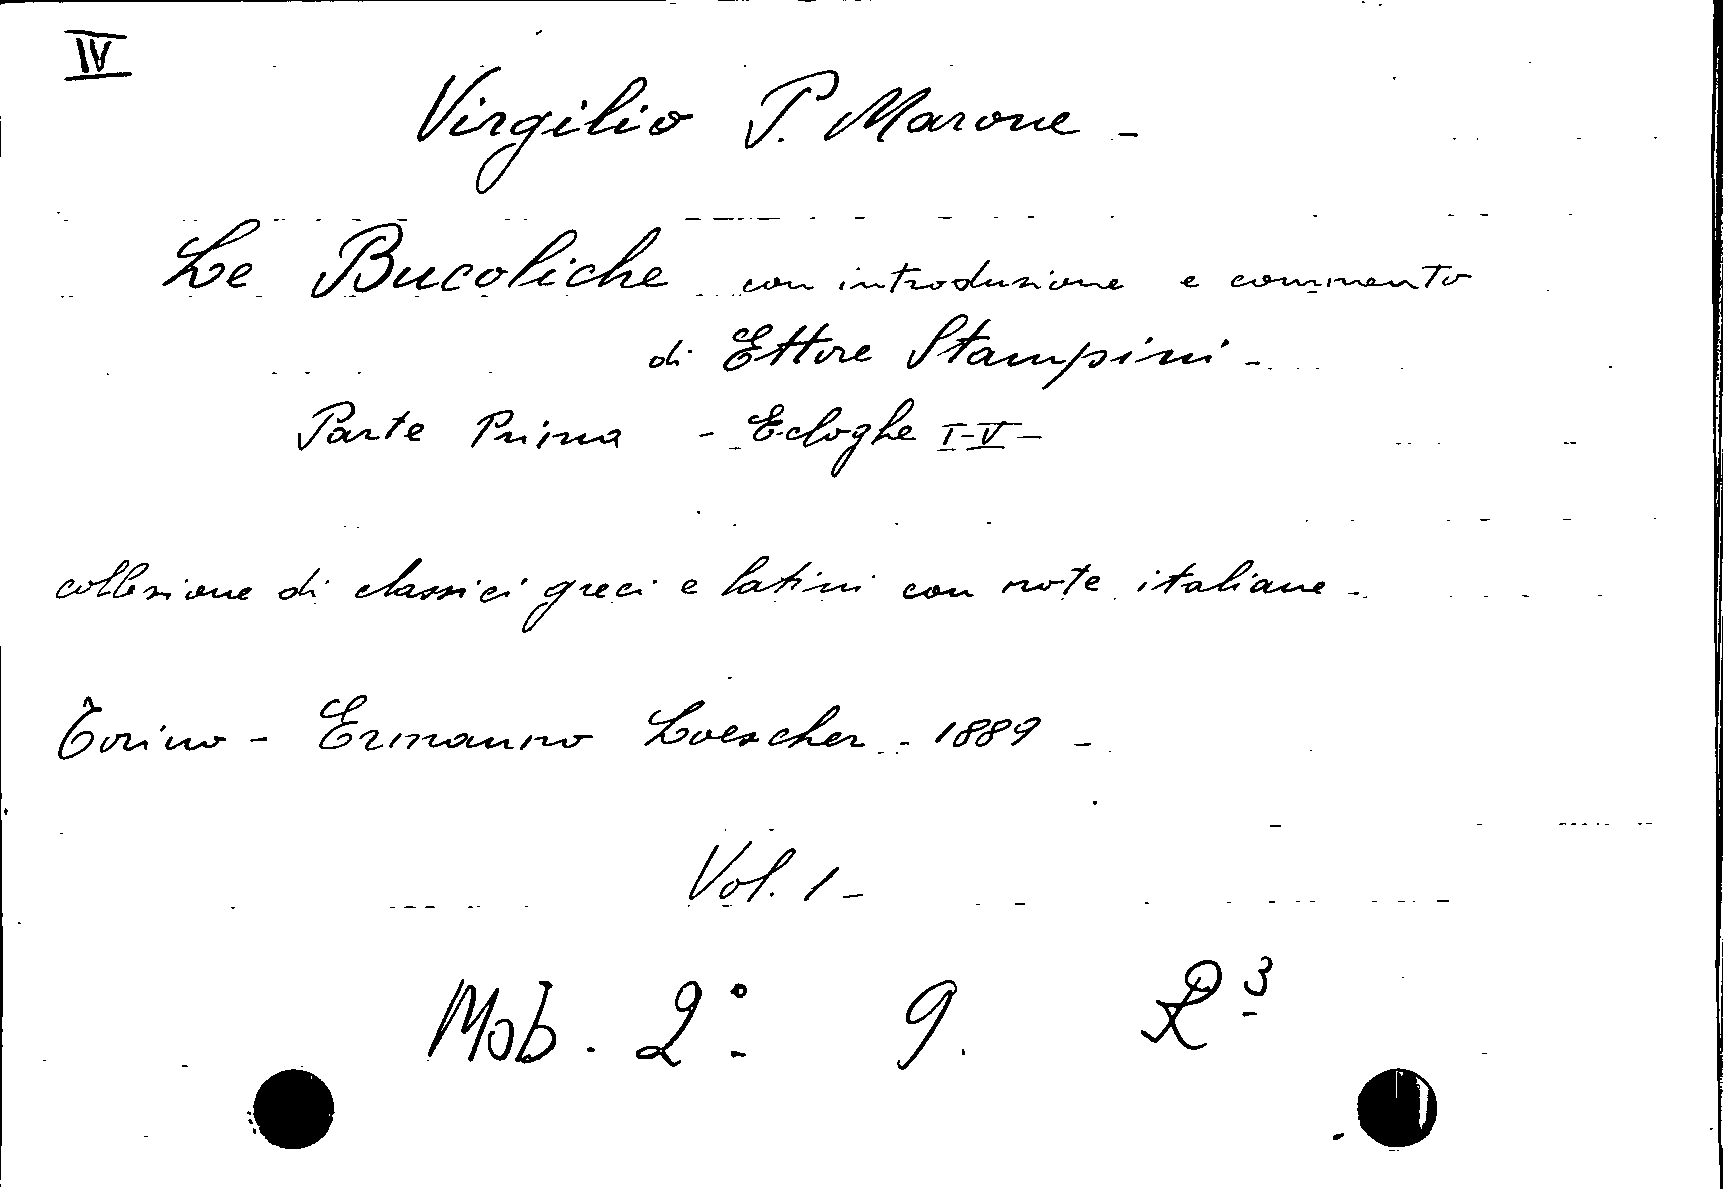 IV
Virgilio P. Marone -
Le Bucoliche con introduzione e commento
di Ettore Stampini -
Parte Prima - Ecloghe I-V -
collezione di classici greci e latini con note italiane -
Torino - Ermanno Loescher - 1889 -
Vol. 1 -
Mob. 2° 9. R 3